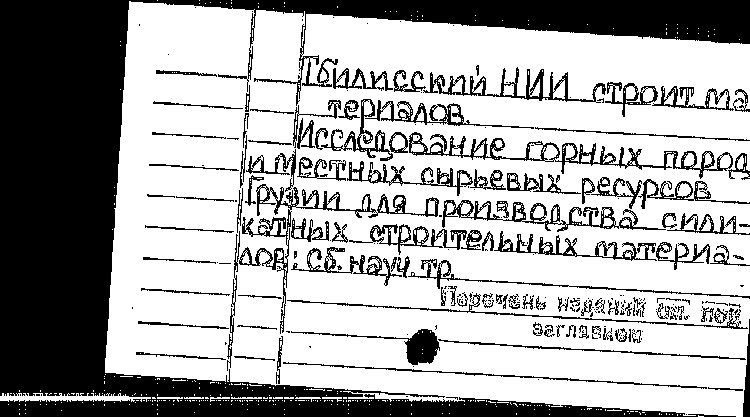 Тбилисский НИИ строит ма
териалов.
Исследование горных пород
и местных сырьевых ресурсов
Грузии для производства сили-
катных строительных материа-
лов: Сб. науч. тр.
Перечень изданий см. под
заглавием